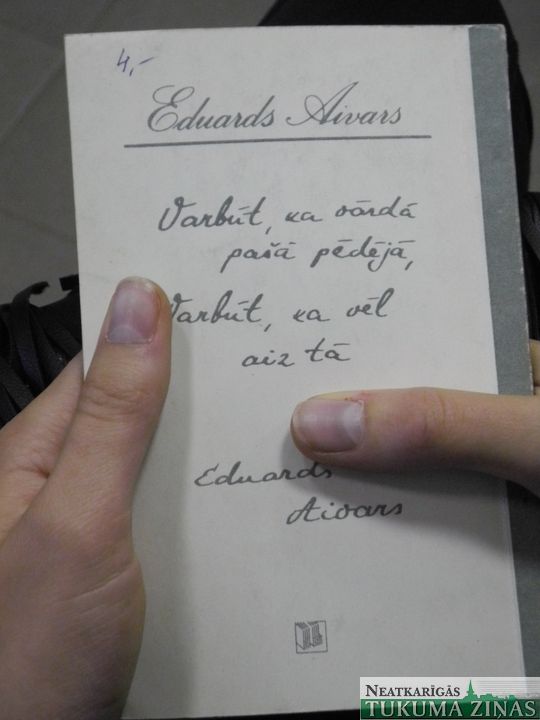 4,-
Eduards Aivars
Varbūt, ka vārdā
pašā pēdējā,
Varbūt, ka vēl
aiz tā
Eduards
Aivars
NEATKARĪGĀS
TUKUMA ZIŅAS